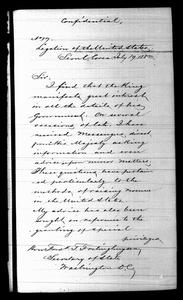 Confidential.
Legation of the United States,
Seoul, Corea July 19, 188
Sir:
I find that the King
manifests great interest
in all the details of his
Government. On several
occasions of late I have
received Messengers, direct
from His Majesty, asking
information and even
advice upon minor matters.
These questions have pertained
particularly to the
methods of raising revenue
in the United States.
My advice has also been
sought in reference to the
granting of special
privileges
Hon. Fred'k T. Frelinghuysen,
Secretary of State,
Washington D.C.